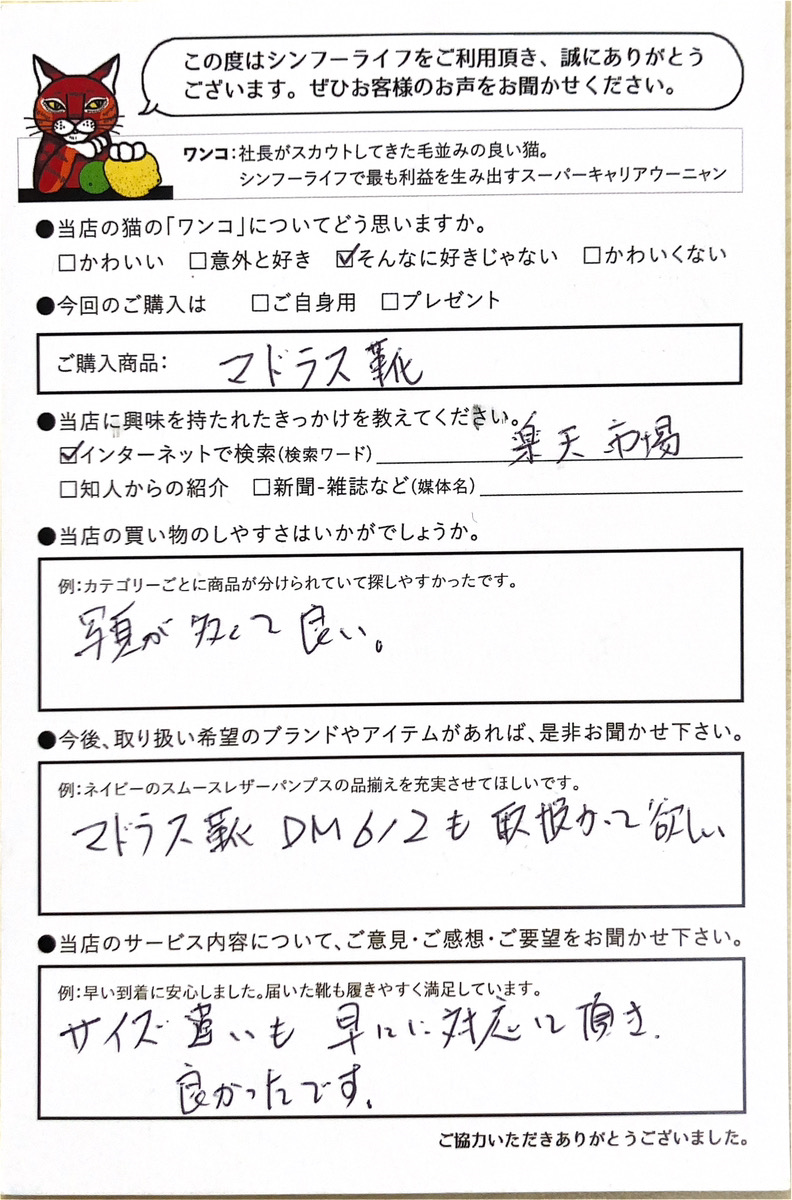 この度はシンフーライフをご利用頂き、誠にありがとう
ございます。ぜひお客様のお声をお聞かせください。
ワンコ：社長がスカウトしてきた毛並みの良い猫。
シンフーライフで最も利益を生み出すスーパーキャリアウーニャン
●当店の猫の「ワンコ」についてどう思いますか。
□かわいい □意外と好き ☑そんなに好きじゃない □かわいくない
●今回のご購入は □ご自身用 □プレゼント
ご購入商品： マドラス靴
●当店に興味を持たれたきっかけを教えてください。
☑インターネットで検索(検索ワード) 楽天市場
□知人からの紹介 □新聞-雑誌など(媒体名)
●当店の買い物のしやすさはいかがでしょうか。
例：カテゴリーごとに商品が分けられていて探しやすかったです。
写真が多くて良い。
●今後、取り扱い希望のブランドやアイテムがあれば、是非お聞かせ下さい。
例：ネイビーのスムースレザーパンプスの品揃えを充実させてほしいです。
マドラス靴 DM612も取扱かって欲しい
●当店のサービス内容について、ご意見・ご感想・ご要望をお聞かせ下さい。
例：早い到着に安心しました。届いた靴も履きやすく満足しています。
サイズ違いも 早 に対応して頂き、
良かったです。
ご協力いただきありがとうございました。